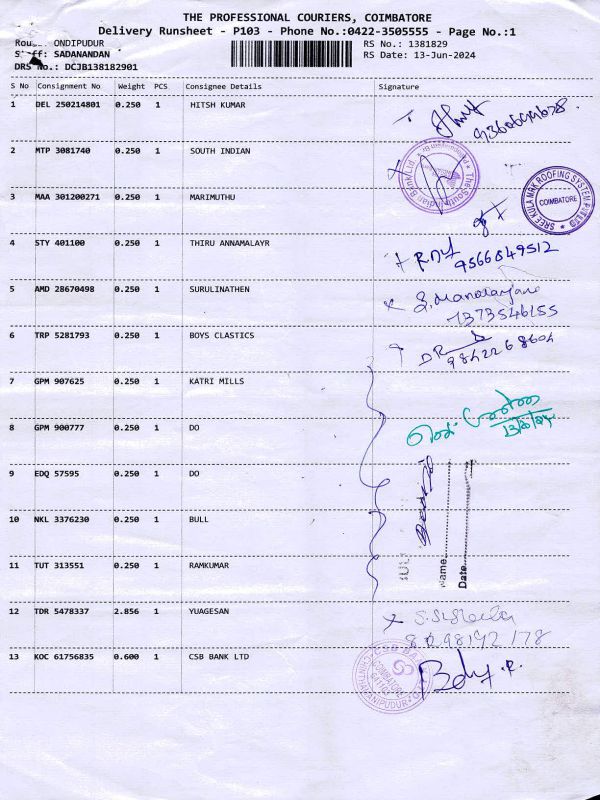 THE PROFESSIONAL COURIERS, COIMBATORE
Delivery Runsheet - P103 - Phone No.:0422-3505555 - Page No.:1
Route: ONDIPUDUR
RS No.: 1381829
Staff: SADANANDAN
RS Date: 13-Jun-2024
DRS No.: DCJB138182901
S No Consignment No Weight PCS Consignee Details Signature
1 DEL 250214801 0.250 1 HITSH KUMAR
2 MTP 3081740 0.250 1 SOUTH INDIAN
The South Indian Bank Ltd.
3 MAA 301200271 0.250 1 MARIMUTHU
SREE KULA MRK ROOFING SYSTEM
COIMBATORE
4 STY 401100 0.250 1 THIRU ANNAMALAYR
9566849512
5 AMD 28670498 0.250 1 SURULINATHEN
7373546155
6 TRP 5281793 0.250 1 BOYS CLASTICS
9842268604
7 GPM 907625 0.250 1 KATRI MILLS
8 GPM 900777 0.250 1 DO
9 EDQ 57595 0.250 1 DO
10 NKL 3376230 0.250 1 BULL
Name
Date
11 TUT 313551 0.250 1 RAMKUMAR
12 TDR 5478337 2.856 1 YUAGESAN
13 KOC 61756835 0.600 1 CSB BANK LTD
CSB BANK
COIMBATORE